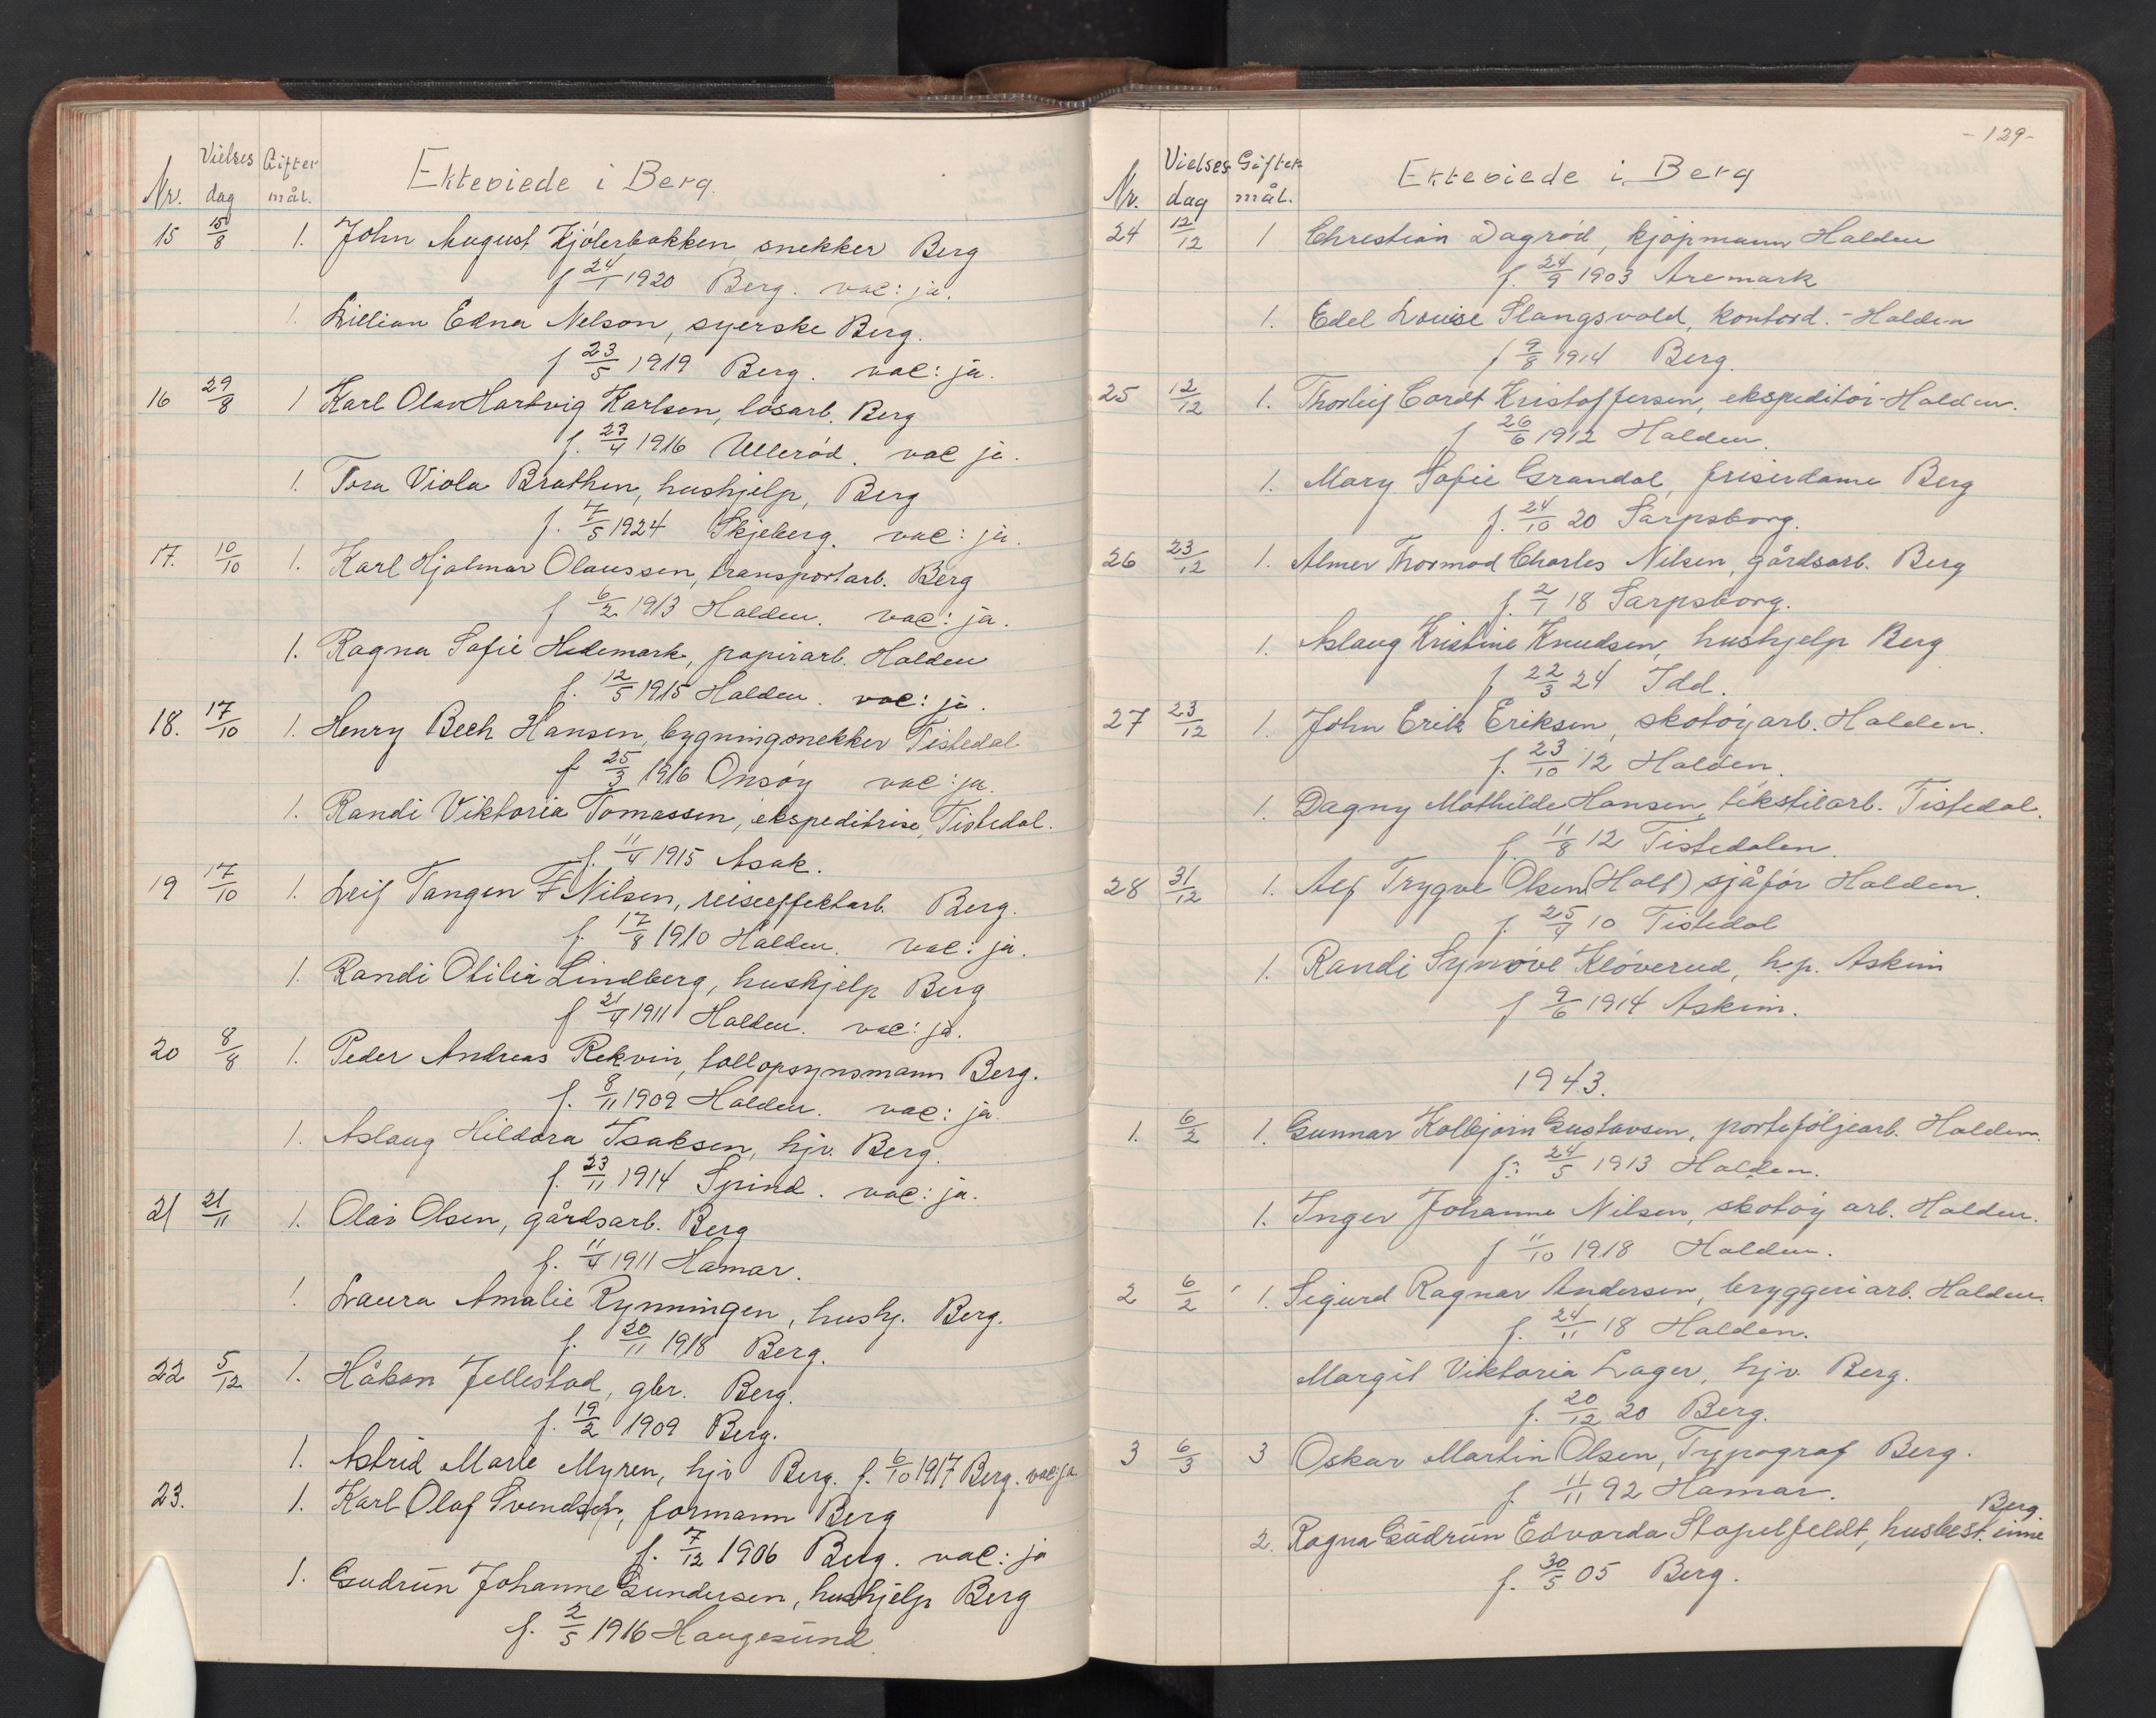 Nr. Vielses dag Gifter mål. Ekteviede i Berg.
15 15/8 1. John August Kjölerbakken, snekker Berg
f 24/1 1920 Berg. vac: ja.
1. Lillian Edna Nelson, syerske Berg.
f 23/5 1919 Berg. vac: ja.
16 29/8 1 Karl Olav Hartvig Karlsen, løsarb. Berg
f. 23/4 1916 Ullerød. vac ja.
1. Tora Viola Bråthen, hushjelp, Berg
f. 7/5 1924 Skjeberg. vac: ja.
17. 10/10 1. Karl Hjalmar Olaussen, transportarb. Berg
f 6/2 1913 Halden. vac: ja.
1. Ragna Sofie Hedemark, papirarb. Halden
f. 12/5 1915 Halden. vac: ja.
18. 17/10 1. Henry Bech Hansen, bygningsnekker Tistedal
f 25/3 1916 Onsøy vac: ja.
1. Randi Viktoria Tomassen, ekspeditrise, Tistedal.
f. 11/4 1915 Asak.
19 17/10 1. Leif Tangen F Nilsen, reiseeffektarb. Berg.
f. 17/8 1910 Halden. vac: ja.
1. Randi Otilie Lindberg, hushjelp Berg
f 21/4 1911 Halden. vac: ja.
20 8/8 1. Peder Andreas Rekvin, tollopsynsmann Berg.
f. 8/11 1909 Halden. vac: ja
1. Aslaug Hildora Isaksen, hjv. Berg.
f. 23/11 1914 Spind. vac: ja.
21 21/11 1. Olai Olsen, gårdsarb. Berg
f. 11/4 1911 Hamar.
1. Laura Amalie Rynningen, hushj. Berg.
f. 20/11 1918 Berg.
22 5/12 1. Håkon Jellestad, gbr. Berg.
f. 19/2 1909 Berg.
1. Astrid Marie Myren, hjv Berg. f. 6/10 1917 Berg. vac: ja
23. 1. Karl Olaf Svendsen, formann Berg
f. 7/12 1906 Berg. vac: ja
1. Gudrun Johanne Gundersen, hushjelp Berg
f. 2/5 1916 Haugesund.
- 129 -
Nr. Vielses dag Gifter mål. Ekteviede i Berg
24 12/12 1 Chrestian Dagrød, kjøpmann Halden
f. 24/9 1903 Aremark
1. Edel Louise Slangsvold, kontord. - Halden
f 9/8 1914 Berg.
25 12/12 1. Thorleif Cordt Kristoffersen, ekspeditør - Halden.
f 26/6 1912 Halden.
1. Mary Sofie Grandal, friserdame Berg
f. 24/10 20 Sarpsborg.
26 23/12 1. Almer Thormod Charles Nilsen, gårdsarb. Berg
f. 2/1 18 Sarpsborg.
1. Aslaug Kristine Knudsen, hushjelp Berg
f 22/3 24 Idd.
27 23/12 1. John Erik Eriksen, skotøyarb. Halden.
f. 23/10 12 Halden.
1. Dagny Mathilde Hansen, tekstilarb. Tistedal.
f. 11/8 12 Tistedalen.
28 31/12 1. Alf Trygve Olsen (Holt) sjåfør Halden.
f. 25/4 10 Tistedal
1. Randi Synøve Kløverud, h.p. Askim
f 9/6 1914 Askim.
1943.
1. 6/2 1. Gunnar Kolbjørn Gustavsen, porteføljearb. Halden.
f: 24/5 1913 Halden.
1. Inger Johanne Nilsen, skotøy arb. Halden.
f 11/10 1918 Halden.
2 6/2 1. Sigurd Ragnar Andersen, bryggeriarb. Halden.
f. 24/11 18 Halden.
Margit Viktoria Lager, hjv. Berg.
f. 20/12 20 Berg.
3 6/3 3 Oskar Martin Olsen, Typograf Berg.
f. 11/11 92 Hamar.
2. Ragna Gudrun Edvarda Stapelfeldt, husbest.inne Berg.
f. 30/5 05 Berg.